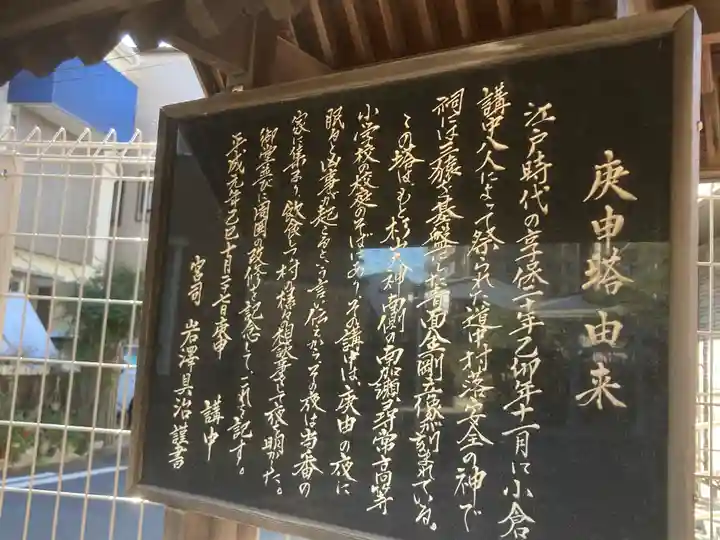 庚申塔由来
江戸時代の享保二十年乙卯年十一月に小倉
講中八人によって祭られた道中村落安全の神で
祠は三猿を基盤とした青面金剛立像が刻まれている。
この塔はもと杉山大神南側の南加瀬尋常高等
小学校の校庭のそばにありその講中は、庚申の夜に
眠ると凶事が起きるという言い伝えからその夜は当番の
家に集まり飲食しつつ村の様々な相談事をして夜を明かした。
御堂並に周囲の改修を記念してこれを記す。
平成元年己巳十月二十七日庚申 講中
宮司 岩澤具治謹書